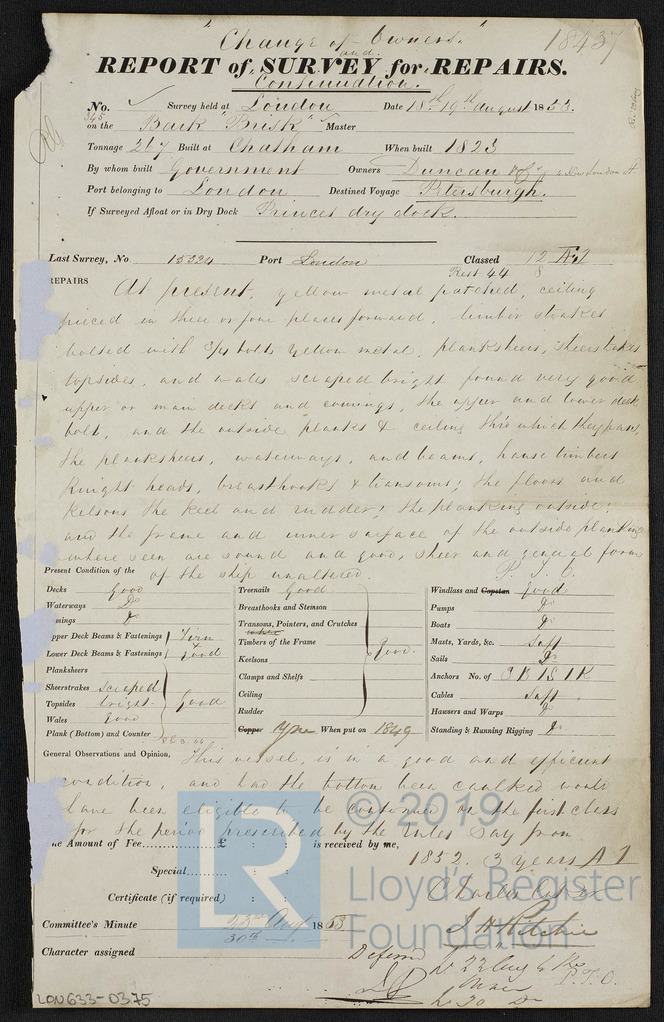 "Change of Owners." 18437
and
REPORT of SURVEY for REPAIRS.
Continuation.
No. 345 Survey held at London Date 18th, 19th August 1853.
on the Bark "Brisk" Master
Tonnage 267 Built at Chatham When built 1823
By whom built Government Owners Duncan & Co
Port belonging to London Destined Voyage Petersburgh.
If Surveyed Afloat or in Dry Dock Princes dry dock.
Last Survey, No 15324 Port London Classed 12 A1
Rest. 44 8
REPAIRS At present, yellow metal patched, ceiling
pieced in three or four places forward, timber strakes
bolted with bolts yellow metal, planksheers, sheerstrakes
topsides, and wales scraped bright found very good
upper or main decks and comings, the upper and lower deck
bolt, and the outside planks & ceiling thro which they pass,
the planksheers, waterways, and beams, hause timbers
Knight heads, breasthooks & transoms; the floors and
kelsons the keel and rudder; the planking outside;
and the frame and inner surface of the outside planking
where seen are sound and good, sheer and general form
of the ship unaltered. P. T. O.
Present Condition of the
Decks good
Waterways Do
mings Do
pper Deck Beams & Fastenings Firm
Lower Deck Beams & Fastenings & good
Planksheers
Sheerstrakes scraped
Topsides bright good
Wales good
Plank (Bottom) and Counter
Treenails Good
Breasthooks and Stemson
Transoms, Pointers, and Crutches
Timbers of the Frame
Keelsons good.
Clamps and Shelfs
Ceiling
Rudder
Copper When put on 1849
Windlass and Capstan Good
Pumps Do
Boats Do
Masts, Yards, &c. Suff
Sails Do
Anchors No. of 3 B 1 S 1 K
Cables Suff
Hawsers and Warps Do
Standing & Running Rigging Do
General Observations and Opinion, This vessel, is in a good and efficient
condition, and had the bottom been caulked would
have been eligible to be continued in the first class
for the period prescribed by the rules say from
1852. 3 years A 1
he Amount of Fee £ : : is received by me,
Special : :
Certificate (if required) : :
Committee's Minute 23rd Aug 1853
30th
Character assigned Deferred
J H Ritchie
P. T. O.
LON633-0375
© 2019
LR
Lloyd's Register
Foundation